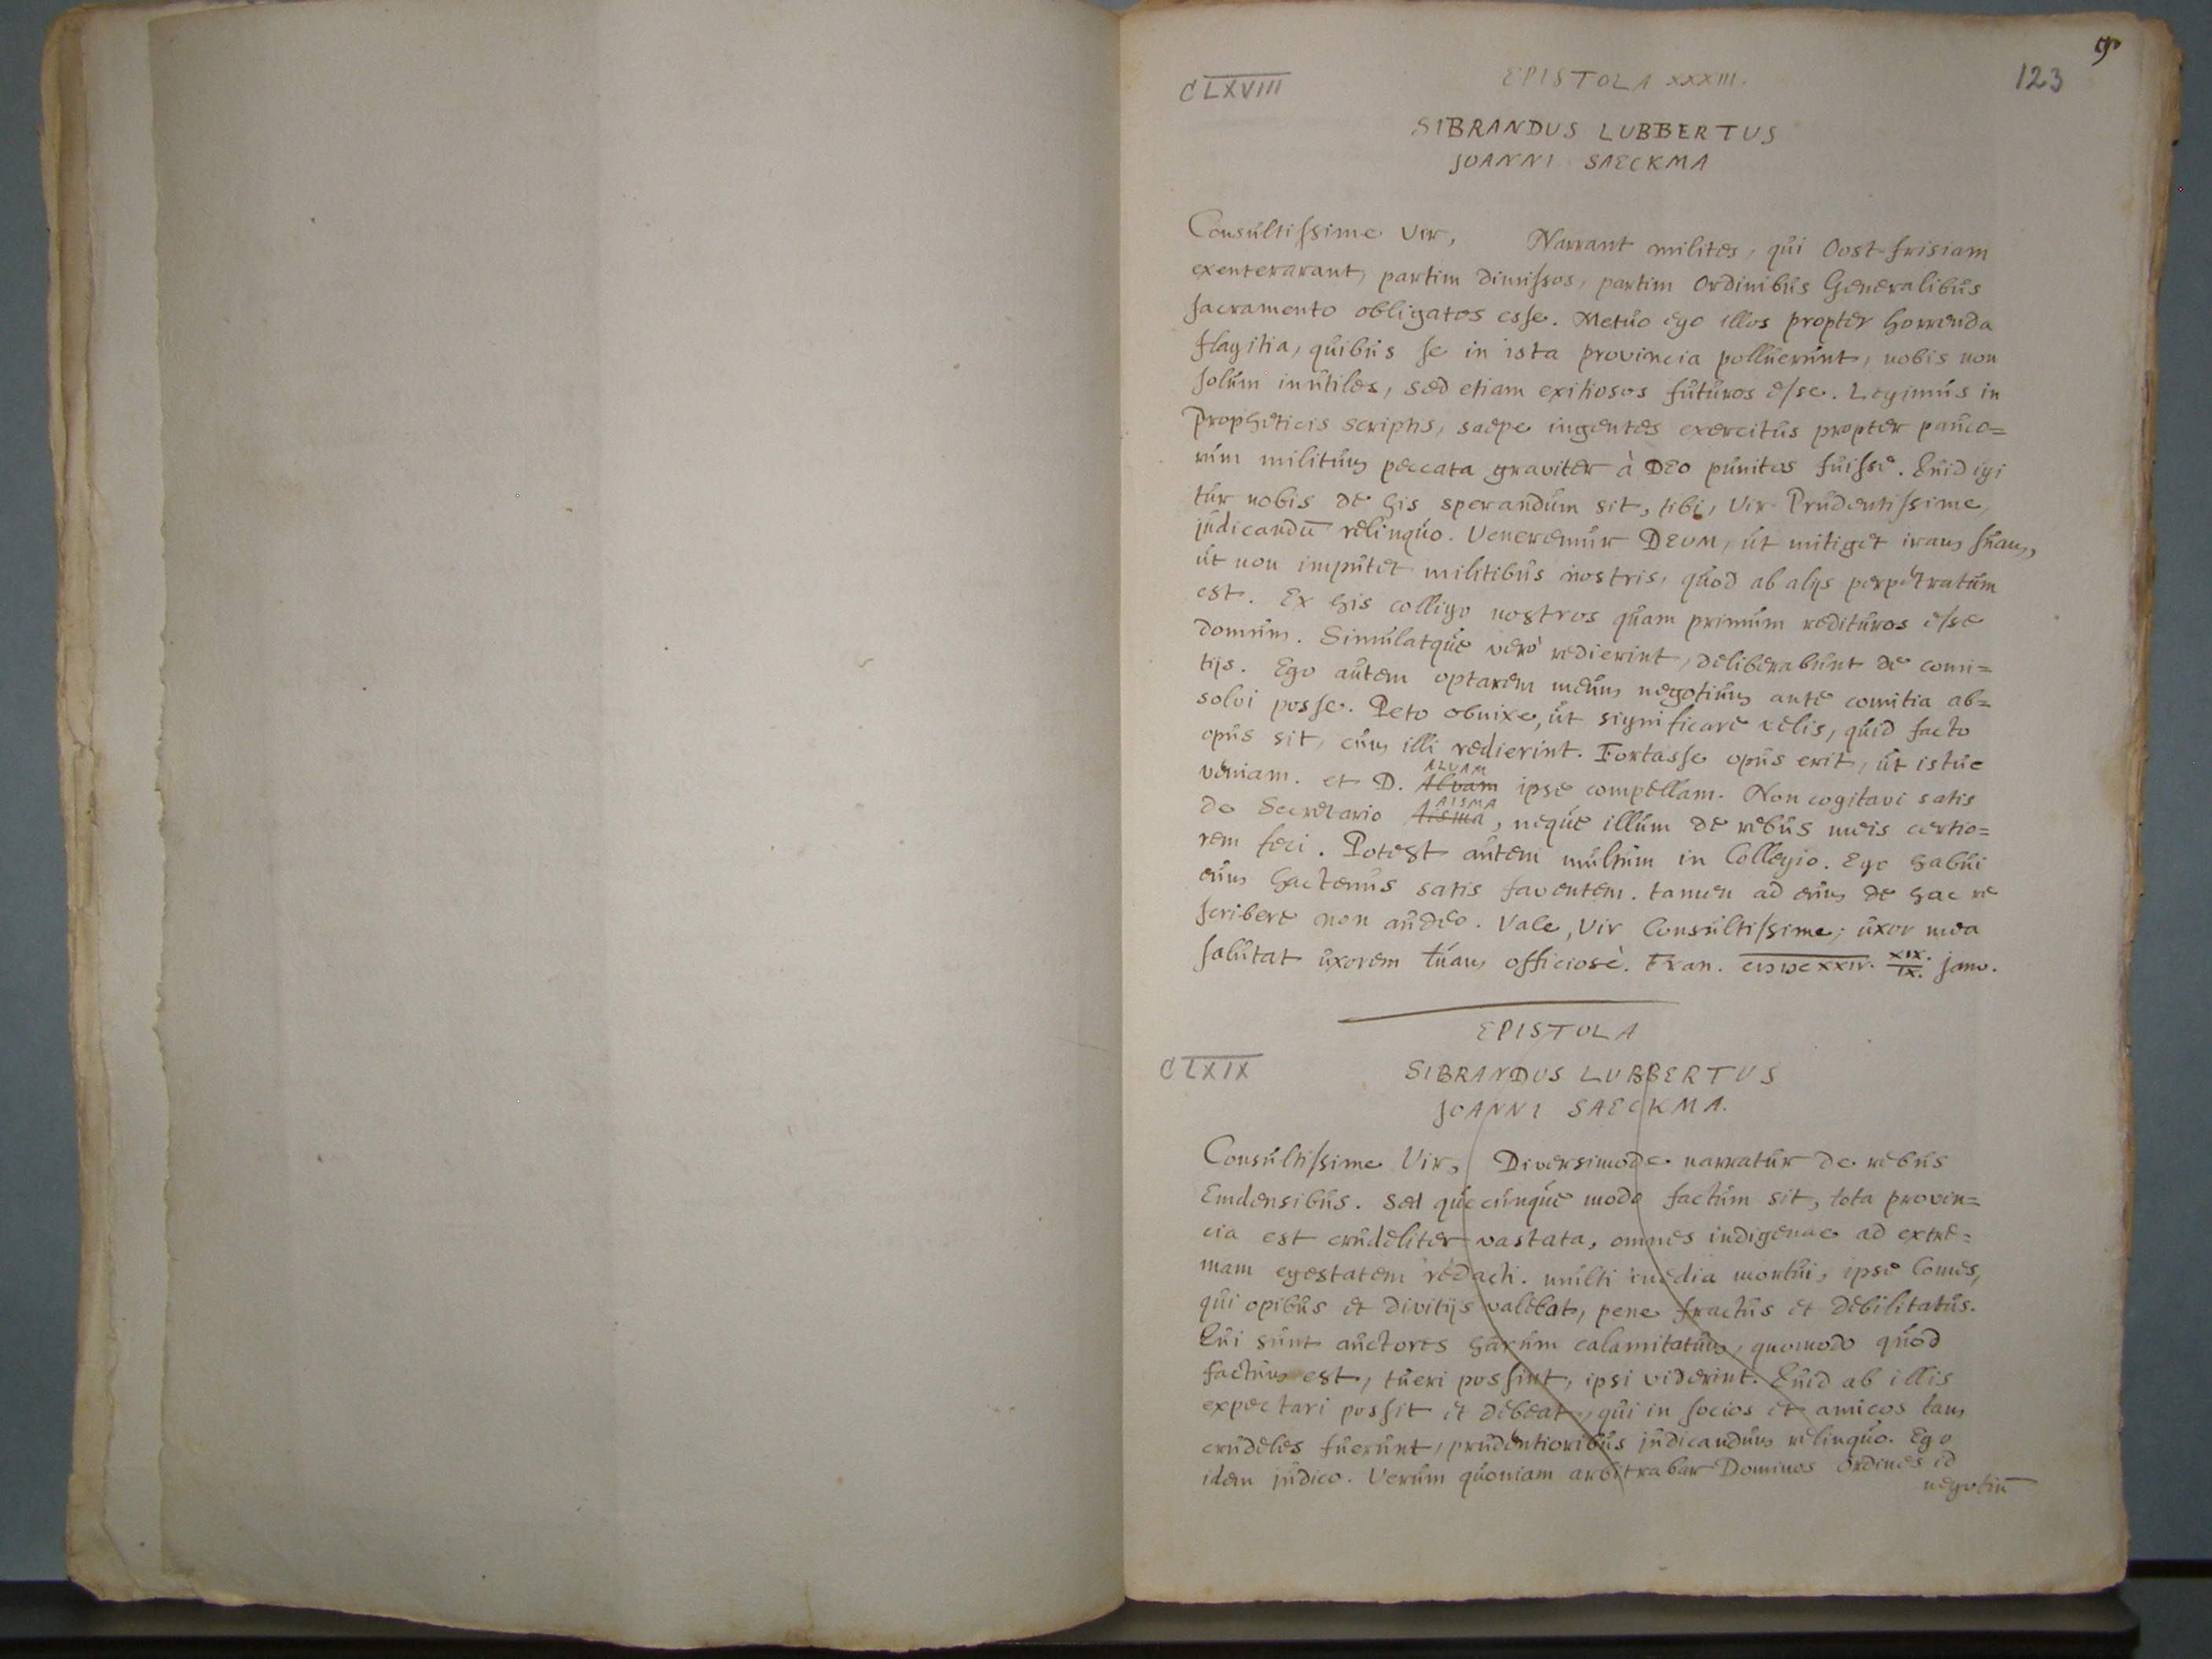 123
CLXVIII
EPISTOLA XXXIII.
SIBRANDUS LUBBERTUS
JOANNI SAECKMA
Consultissime Vir, Narrant milites, qui Oost-frisiam
exenterarant, partim dimissos, partim Ordinibus Generalibus
sacramento obligatos esse. Metuo ego illos propter horrenda
flagitia, quibus se in ista provincia polluerunt, nobis non
solum inutiles, sed etiam exitiosos futuros esse. Legimus in
Propheticis scriptis, saepe ingentes exercitus propter pauco=
rum militum peccata graviter à DEO punitos fuisse. Quid igi
tur nobis de his sperandum sit, tibi, Vir Prudentissime,
judicandū relinquo. Veneremur DEUM, ut mitiget iram suam,
ut non imputet militibus nostris, quod ab alijs perpetratum
est. Ex his colligo nostros quam primum redituros esse
domum. Simulatque verò redierint, deliberabunt de comi=
tijs. Ego autem optarem meum negotium ante comitia ab=
solvi posse. Peto obnixe, ut significare velis, quid facto
opus sit, cum illi redierint. Fortasse opus erit, ut istuc
veniam. et D. Alvam ALVAM ipse compellam. Non cogitavi satis
de Secretario Aisma AISMA, neque illum de rebus meis certio=
rem feci. Potest autem multum in Collegio. Ego habui
eum hactenus satis faventem. tamen ad eum de hac re
scribere non audeo. Vale, Vir Consultissime; uxor mea
salutat uxorem tuam officiosè. Fran. CIƆIƆCXXIV. XIX./IX. Janv.
EPISTOLA
CLXIX
SIBRANDUS LUBBERTUS
JOANNI SAECKMA.
Consultissime Vir, Diversimode narratur de rebus
Emdensibus. Sed quocunque modo factum sit, tota provin=
cia est crudeliter vastata, omnes indigenae ad extre=
mam egestatem redacti. multi inedia mortui, ipse Comes,
qui opibus et divitijs valebat, pene fractus et debilitatus.
Qui sunt auctores harum calamitatum, quomodo quod
factum est, tueri possint, ipsi viderint. Quid ab illis
expectari possit et debeat, qui in socios et amicos tam
crudeles fuerunt, prudentioribus judicandum relinquo. Ego
idem judico. Verum quoniam arbitrabar Dominos Ordines id
negotiū